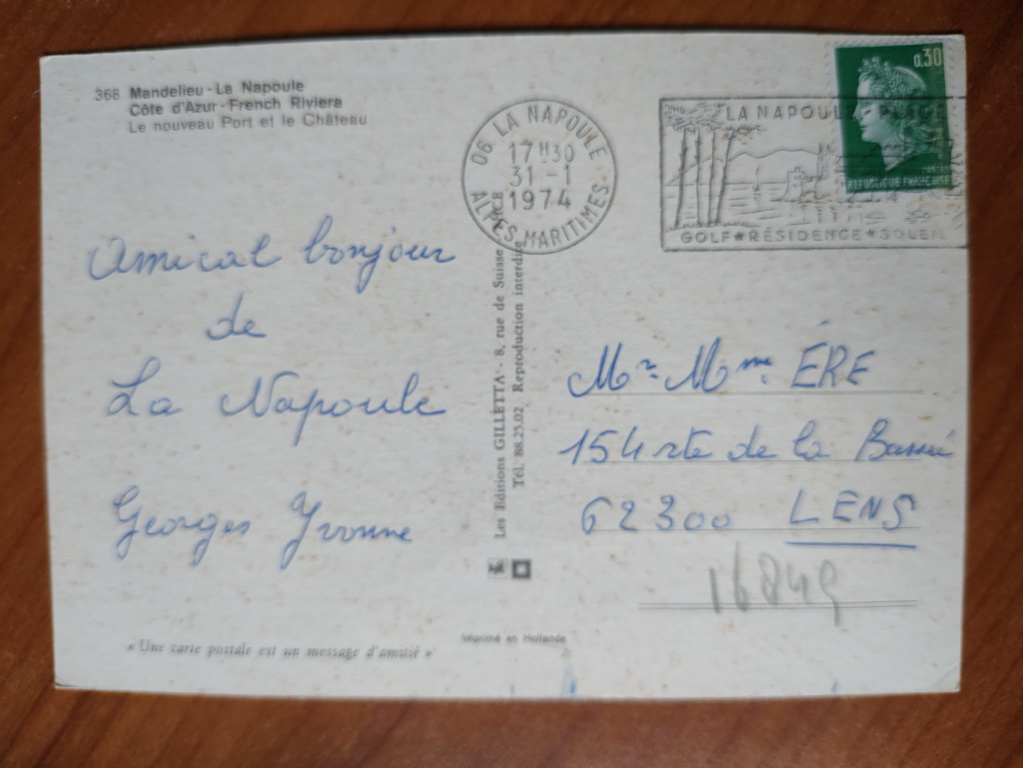 368 Mandelieu - La Napoule
Côte d'Azur - French Riviera
Le nouveau Port et le Château
06 LA NAPOULE
17H30
31 -1
1974
ALPES MARITIMES
LA NAPOULE PLAGE
GOLF★RÉSIDENCE★SOLEIL
0,30
REPUBLIQUE FRANÇAISE
Amical bonjour
de
La Napoule
Georges Yvonne
Les Editions GILLETTA - 8, rue de Suisse
Tél. 88.25.02 Reproduction interdite
Mr. Mme. ÈRE
154 rte de la Bassée
62300 LENS
16849
Imprimé en Hollande
« Une carte postale est un message d'amitié »